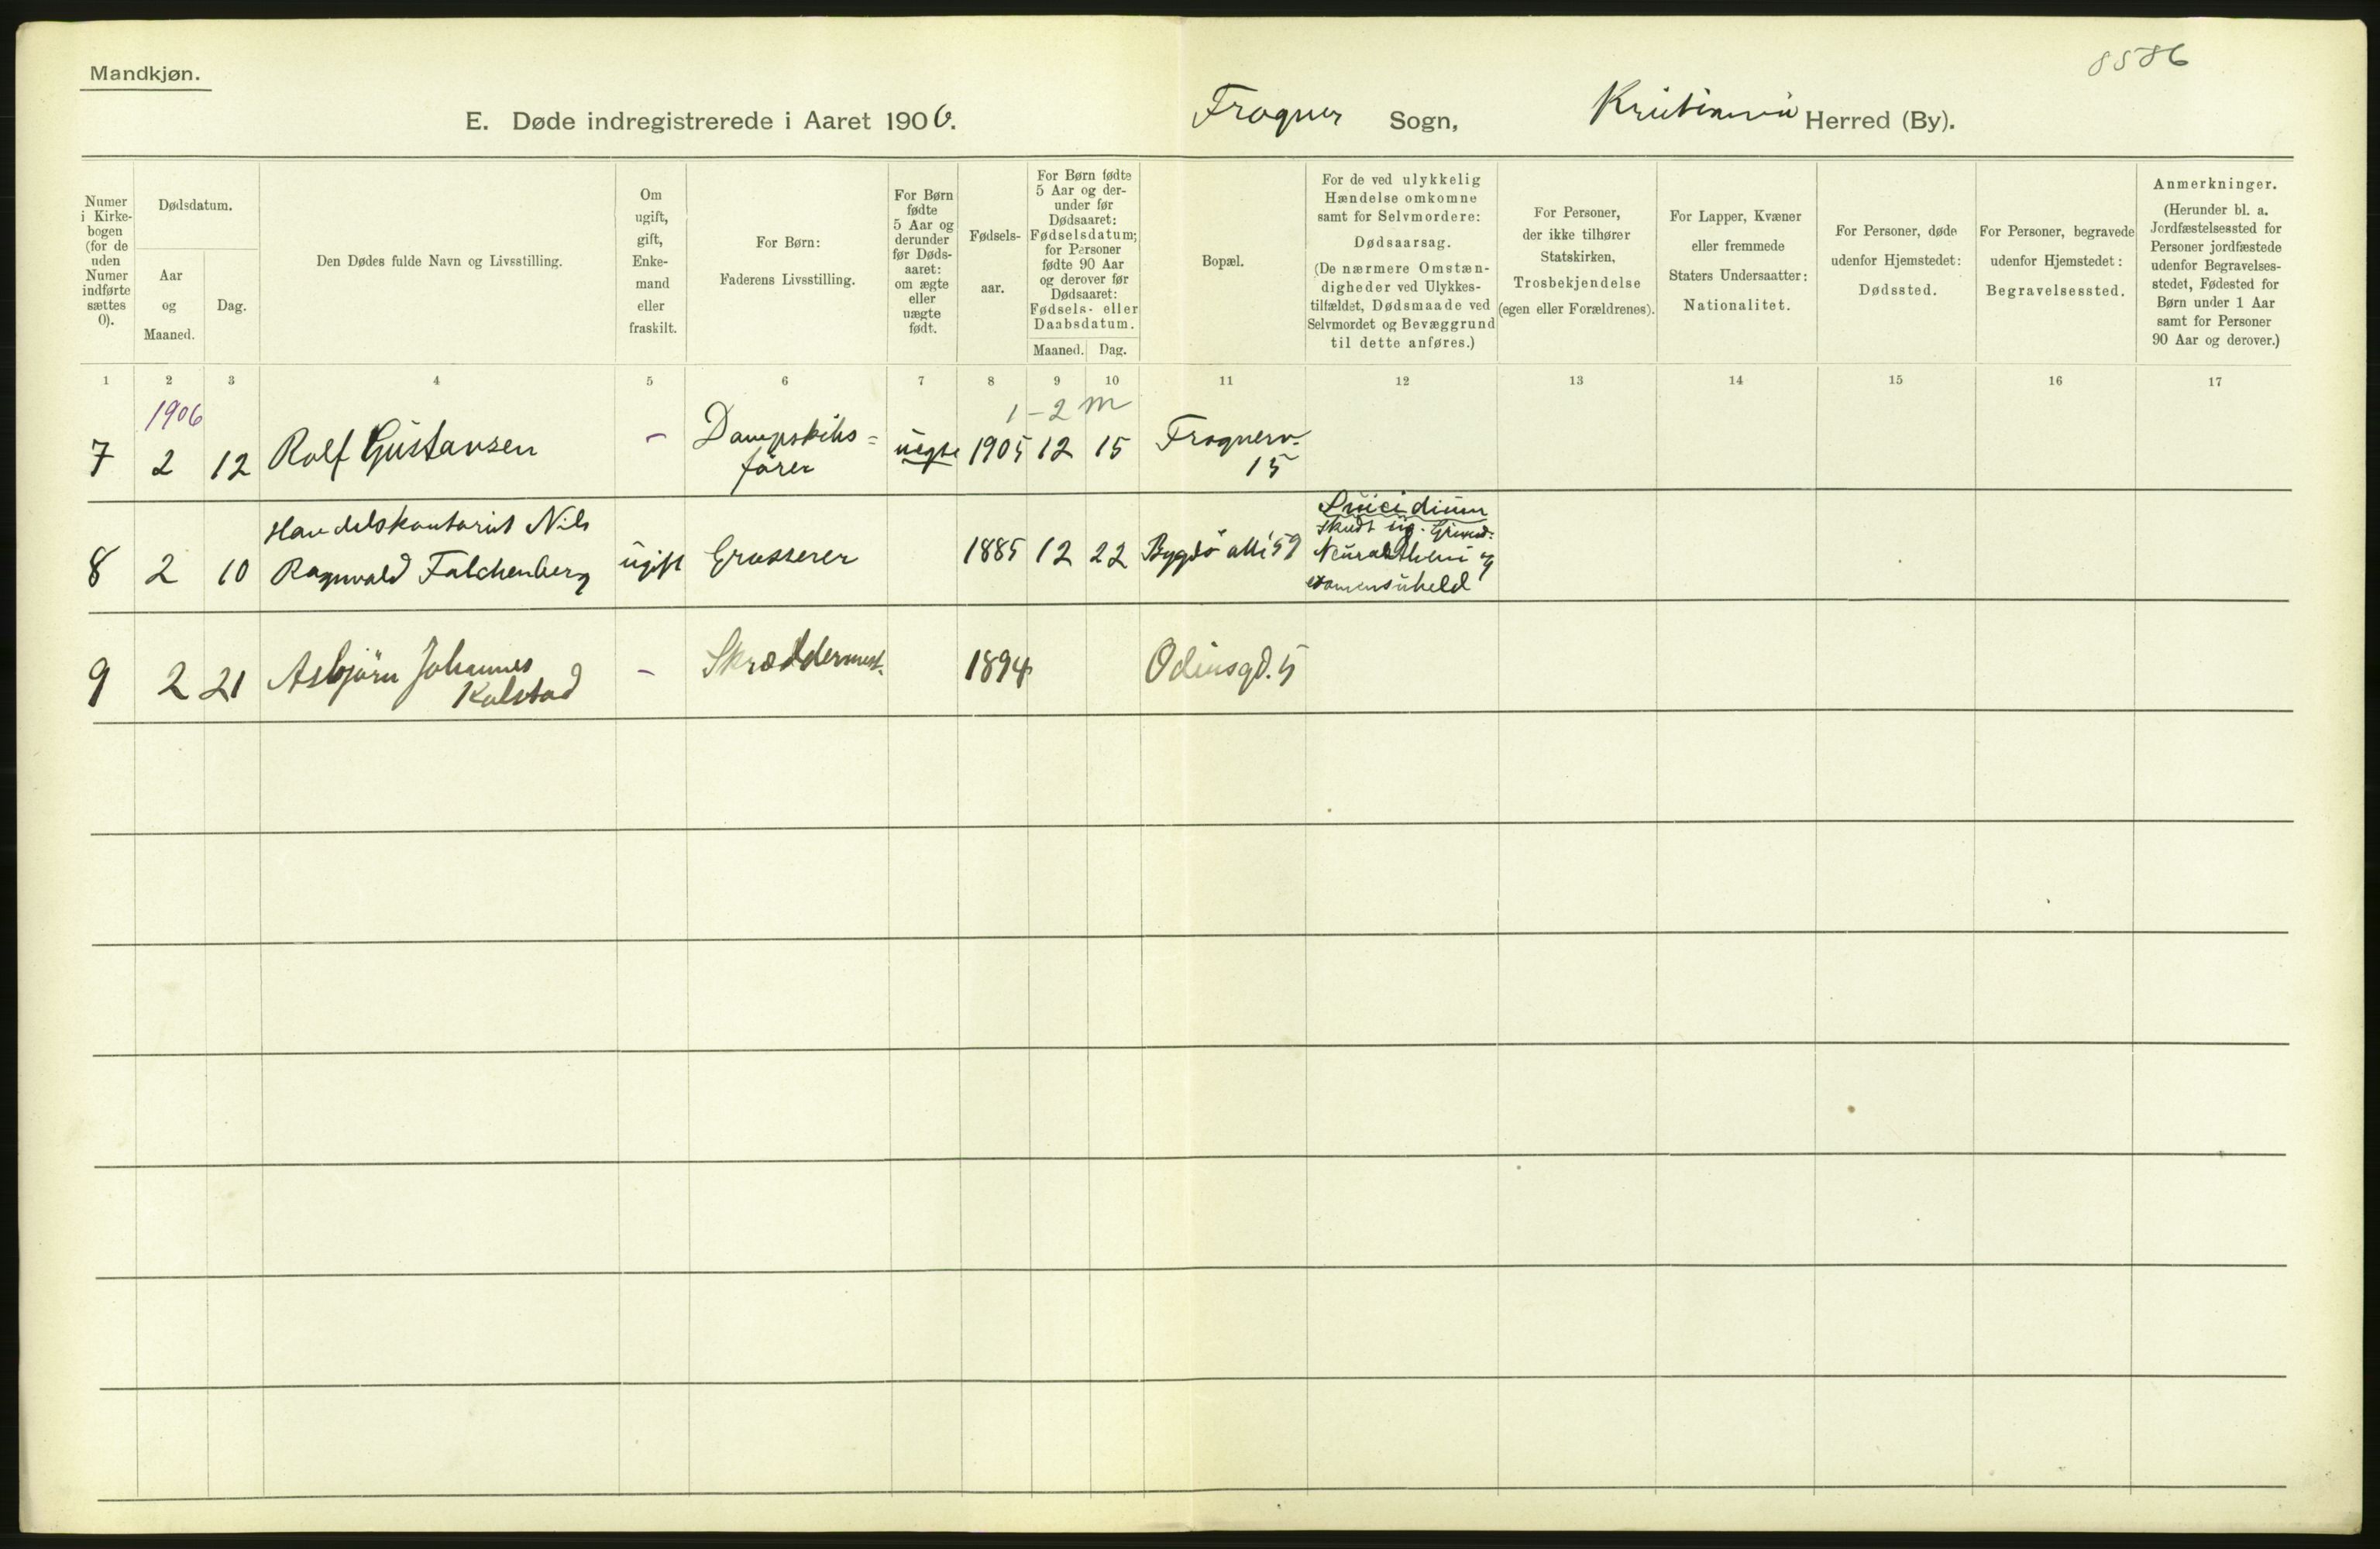 8586
Mandkjøn.
E. Døde indregistrerede i Aaret 1906. Frogner Sogn, Kristiania Herred (By).
Numer i Kirkebogen (for de uden Numer indførte sættes 0).
Dødsdatum.
Aar og Maaned.
Dag.
Den Dødes fulde Navn og Livsstilling.
Om ugift, gift, Enkemand eller fraskilt.
For Børn:
Faderens Livsstilling.
For Børn fødte 5 Aar og derunder før Dødsaaret: om ægte eller uægte født.
Fødselsaar.
For Børn fødte 5 Aar og derunder før Dødsaaret: Fødselsdatum; for Personer fødte 90 Aar og derover før Dødsaaret: Fødsels- eller Daabsdatum.
Maaned. Dag.
Bopæl.
For de ved ulykkelig Hændelse omkomne samt for Selvmordere:
Dødsaarsag.
(De nærmere Omstændigheder ved Ulykkestilfældet, Dødsmaade ved Selvmordet og Bevæggrund til dette anføres.)
For Personer, der ikke tilhører Statskirken,
Trosbekjendelse
(egen eller Forældrenes).
For Lapper, Kvæner eller fremmede Staters Undersaatter:
Nationalitet.
For Personer, døde udenfor Hjemstedet:
Dødssted.
For Personer, begravede udenfor Hjemstedet:
Begravelsessted.
Anmerkninger.
(Herunder bl. a. Jordfæstelsessted for Personer jordfæstede udenfor Begravelsesstedet, Fødested for Børn under 1 Aar samt for Personer 90 Aar og derover.)
1 2 3 4 5 6 7 8 9 10 11 12 13 14 15 16 17
1906
1 - 2 m
7 2 12 Rolf Gustavsen - Dampskibs=
fører uegte 1905 12 15 Frognerv.
15
Suicidium
skudt sig. Grund:
Handelskontorist Nils
8 2 10 Ragnvald Falchenberg ugift Grosserer 1885 12 22 Bygdø allé 59 Neurastheni og
examensuheld
9 2 21 Asbjörn Johannes
Kolstad - Skræddermest. 1894 Odinsgd. 5